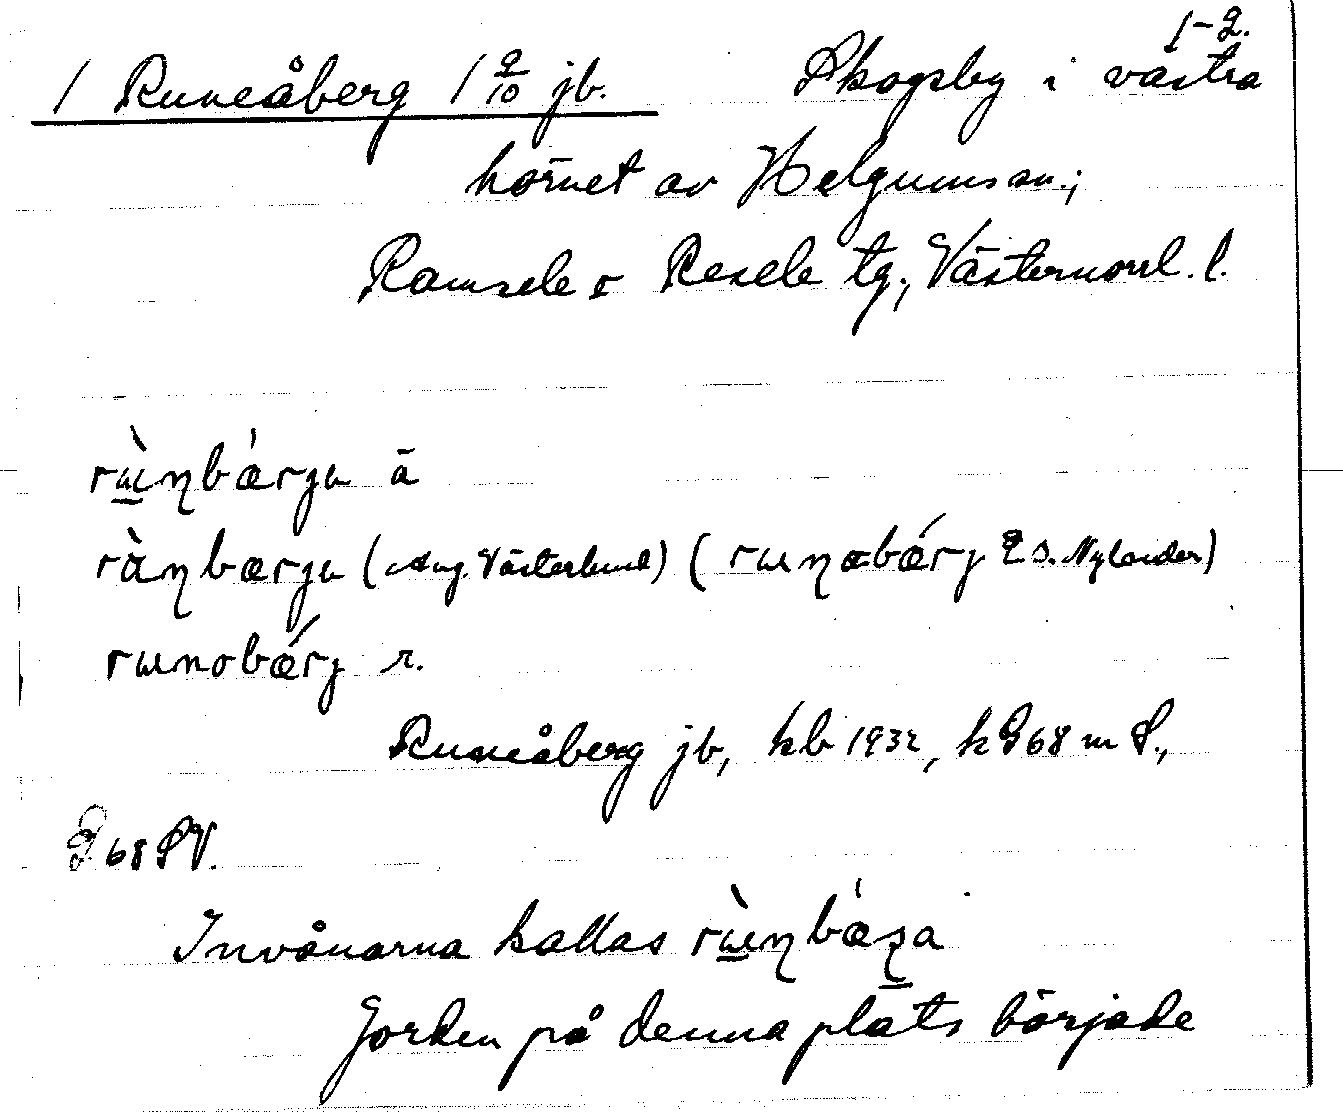 1-2.
1 Runeåberg 1 9/10 jb. Skogsby i västra
hörnet av Helgums sn.;
Ramsele o Resele tg., Västernorrl. l.
bærju ā
(Aug. Västerlund) (E S. Nylander)
runobǽrj r.
Runeåberg jb, kb 1932, k G 68 m S.,
G 68 SV.
Invånarna kallas
Jorden på denna plats började